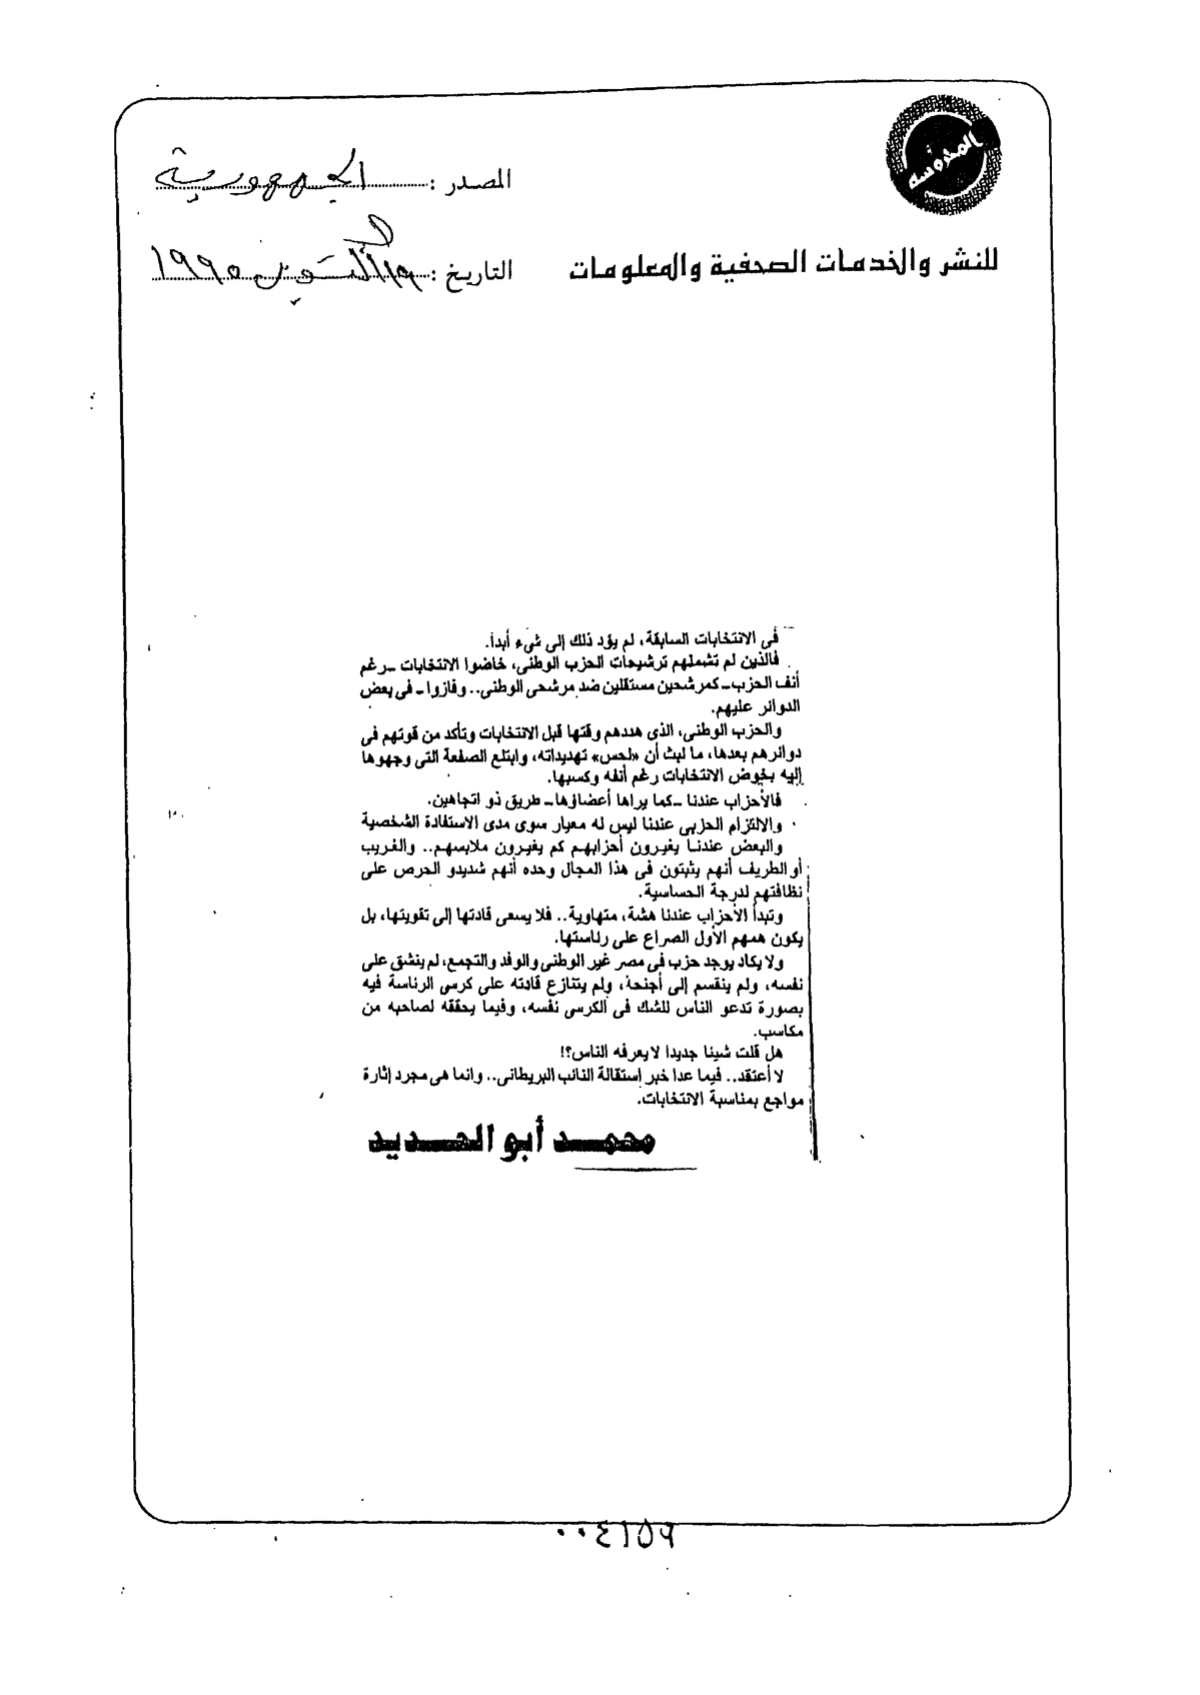 المحروسة
المصدر : الجمهورية
للنشر والخدمات الصحفية والمعلومات
التاريخ : أكتوبر ١٩٩٥
فى الانتخابات السابقة، لم يؤد ذلك إلى شىء أبدا.
فالذين لم تشملهم ترشيحات الحزب الوطنى، خاضوا الانتخابات ـ رغم
أنف الحزب ـ كمرشحين مستقلين ضد مرشحى الوطنى.. وفازوا ـ فى بعض
الدوائر عليهم.
والحزب الوطنى، الذى هددهم وقتها قبل الانتخابات وتأكد من قوتهم فى
دوائرهم بعدها، ما لبث أن «لحس» تهديداته، وابتلع الصفعة التى وجهوها
إليه بخوض الانتخابات رغم أنفه وكسبها.
فالأحزاب عندنا ـ كما يراها أعضاؤها ـ طريق ذو اتجاهين.
والالتزام الحزبى عندنا ليس له معيار سوى مدى الاستفادة الشخصية
والبعض عندنا يغيرون أحزابهم كم يغيرون ملابسهم.. والغريب
أو الطريف أنهم يثبتون فى هذا المجال وحده أنهم شديدو الحرص على
نظافتهم لدرجة الحساسية.
وتبدأ الأحزاب عندنا هشة، متهاوية.. فلا يسعى قادتها إلى تقويتها، بل
يكون همهم الأول الصراع على رئاستها.
ولا يكاد يوجد حزب فى مصر غير الوطنى والوفد والتجمع، لم ينشق على
نفسه، ولم ينقسم إلى أجنحة، ولم يتنازع قادته على كرسى الرئاسة فيه
بصورة تدعو الناس للشك فى الكرسى نفسه، وفيما يحققه لصاحبه من
مكاسب.
هل قلت شيئا جديدا لا يعرفه الناس؟!
لا أعتقد.. فيما عدا خبر إستقالة النائب البريطانى.. وانما هى مجرد إثارة
مواجع بمناسبة الانتخابات.
محمد أبو الحديد
٠٠٤١٥٦